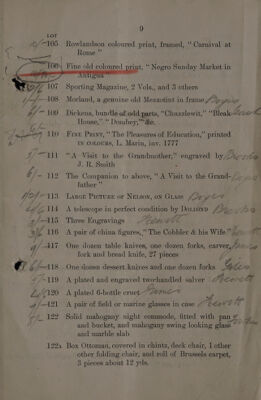 9
LOT
105 Rowlandson coloured print, framed, "Carnival at
Rome"
106 Fine old coloured print, "Negro Sunday Market in
Antigua"
107 Sporting Magazine, 2 Vols., and 3 others
108 Morland, a genuine old Mezzotint in frame
109 Dickens, bundle of odd parts, "Chuzzlewit," "Bleak
House," "Dombey," &c.
110 FINE PRINT, "The Pleasures of Education," printed
IN COLOURS, L. Marin, inv. 1777
111 "A Visit to the Grandmother," engraved by
J. R. Smith
112 The Companion to above, "A Visit to the Grand-
father"
113 LARGE PICTURE OF NELSON, ON GLASS
114 A telescope in perfect condition by DOLLOND
115 Three Engravings Hewett
116 A pair of china figures, "The Cobbler & his Wife"
117 One dozen table knives, one dozen forks, carver,
fork and bread knife, 27 pieces
118 One dozen dessert knives and one dozen forks
119 A plated and engraved twohandled salver
120 A plated 6-bottle cruet James
121 A pair of field or marine glasses in case Hewett
122 Solid mahogany night commode, fitted with pan
and bucket, and mahogany swing looking glass
and marble slab
122A Box Ottoman, covered in chintz, deck chair, 1 other
other folding chair, and roll of Brussels carpet,
3 pieces about 12 yds.